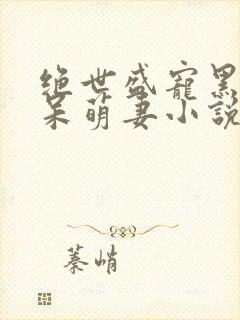 绝世盛宠黑
呆萌妻小說
蓁峭